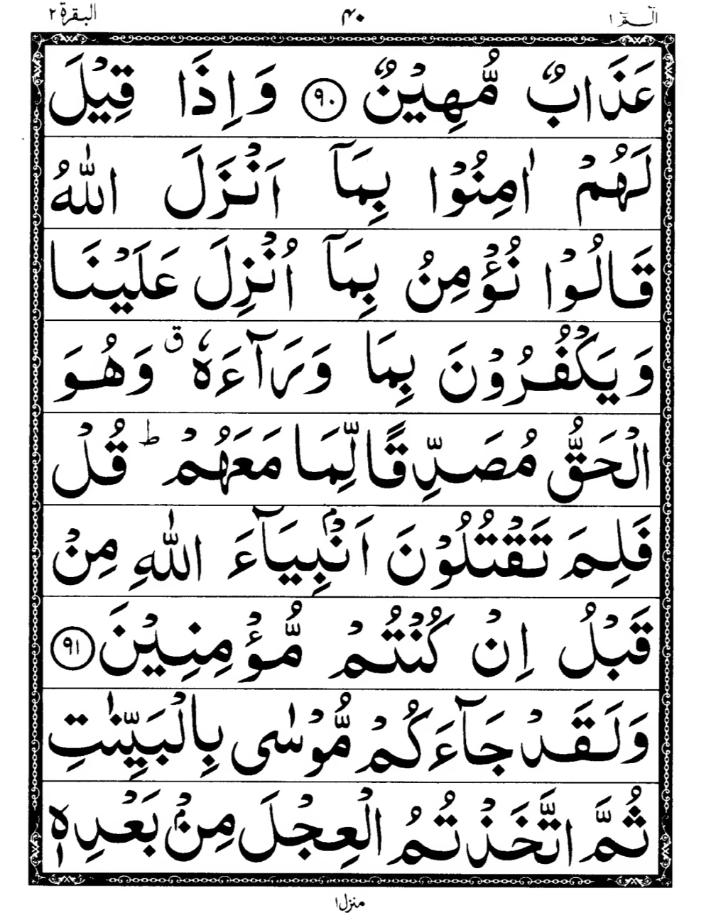 الٓمّٓ ١ ۴۰ البقرة ٢
عَذَابٌ مُّهِیْنٌ ﴿۹۰﴾ وَاِذَا قِیْلَ
لَهُمْ اٰمِنُوْا بِمَاۤ اَنْزَلَ اللّٰهُ
قَالُوْا نُؤْمِنُ بِمَاۤ اُنْزِلَ عَلَیْنَا
وَیَكْفُرُوْنَ بِمَا وَرَآءَهٗ ۗق وَهُوَ
الْحَقُّ مُصَدِّقًا لِّمَا مَعَهُمْ ؕ قُلْ
فَلِمَ تَقْتُلُوْنَ اَنْۢبِیَآءَ اللّٰهِ مِنْ
قَبْلُ اِنْ كُنْتُمْ مُّؤْمِنِیْنَ ﴿۹۱﴾
وَلَقَدْ جَآءَكُمْ مُّوْسٰی بِالْبَیِّنٰتِ
ثُمَّ اتَّخَذْتُمُ الْعِجْلَ مِنْۢ بَعْدِهٖ
منزل ١